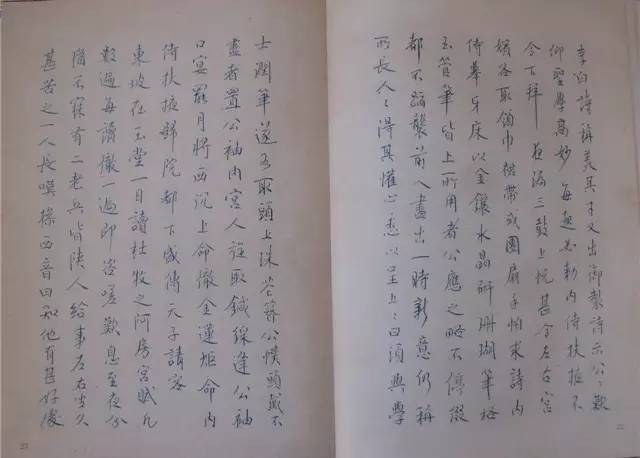 李白詩稱美其才又出御製詩示公〻歎
仰聖學高妙每起必謝內侍扶掖不
令下拜夜漏三鼓上悅甚令左右宮
嬪各取領巾裙帶或團扇手帕求詩內
侍舉牙床以金鑲水晶硯珊瑚筆格
玉管筆皆上所用者公應之略不停綴
都不蹈襲前人盡出一時新意仍稱
所長人〻得其懽心悉以呈上〻曰須與學
22
士潤筆遂各取頭上珠花簪公幞頭戴不
盡者置公袖內宮人旋取鍼線縫公袖
口宴罷月將西沉上命撤金蓮炬命內
侍扶掖歸院都下盛傳天子請客
東坡在玉堂一日讀杜牧之阿房宮賦凡
數遍每讀徹一遍即咨嗟歎息至夜分
猶不寐有二老兵皆陝人給事左右坐久
甚苦之一人長嘆操西音曰知他有甚好處
23